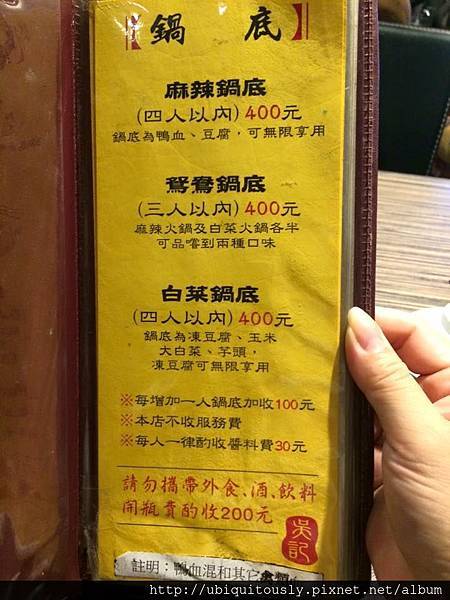 【鍋底】
麻辣鍋底
(四人以內)400元
鍋底為鴨血、豆腐，可無限享用
鴛鴦鍋底
(三人以內)400元
麻辣火鍋及白菜火鍋各半
可品嚐到兩種口味
白菜鍋底
(四人以內)400元
鍋底為凍豆腐、玉米
大白菜、芋頭，
凍豆腐可無限享用
※每增加一人鍋底加收100元
※本店不收服務費
※每人一律酌收醬料費30元
請勿攜帶外食、酒、飲料
開瓶費酌收200元
吳記
註明：鴨血混和其它禽類
http://ubiquitously.pixnet.net/album